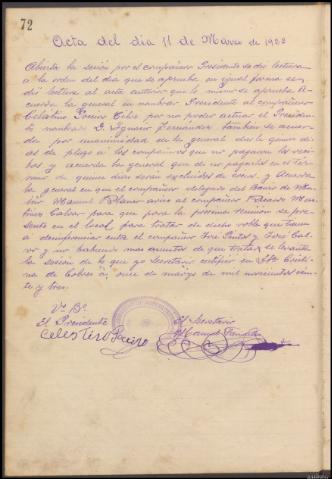 72
Acta del dia 11 de Marzo de 1923
Abierta la sesión por el compañero Presidente se dio lectura
a la orden del dia que se aprueba en igual forma se
dió lectura al acta anterior que lo mismo se aprueba. A-
cuerda la general en nombrar Presidente al compañero
Celestino Pacios por no poder actuar el Presiden-
te nombrado D. Ignacio Fernandez tambien se acuer-
da por unanimidad en la general darle quince di-
as de plazo a los compañeros que no pagaron los reci-
bos y acuerda la general que de no pagarlos en el ter-
mino de quince dias serán excluidos de socios, y acuerda
la general en que el compañero delegado del Barrio de
Manuel Blanco avise al compañero Ma-
para que para la proxima reunion se pre-
sente en el local, para tratar de dicho roble que traen
a entre el compañero José y José Cal-
vo y no habiendo mas asuntos de que tratar se levanta
la sesión de lo que yo Secretario certifico en Stª Cristi-
na de Cobres á, once de marzo de mil novecientos vein-
te y tres.
Vº Bº
El Presidente
Celestino Pacios
El Secretario
Manuel